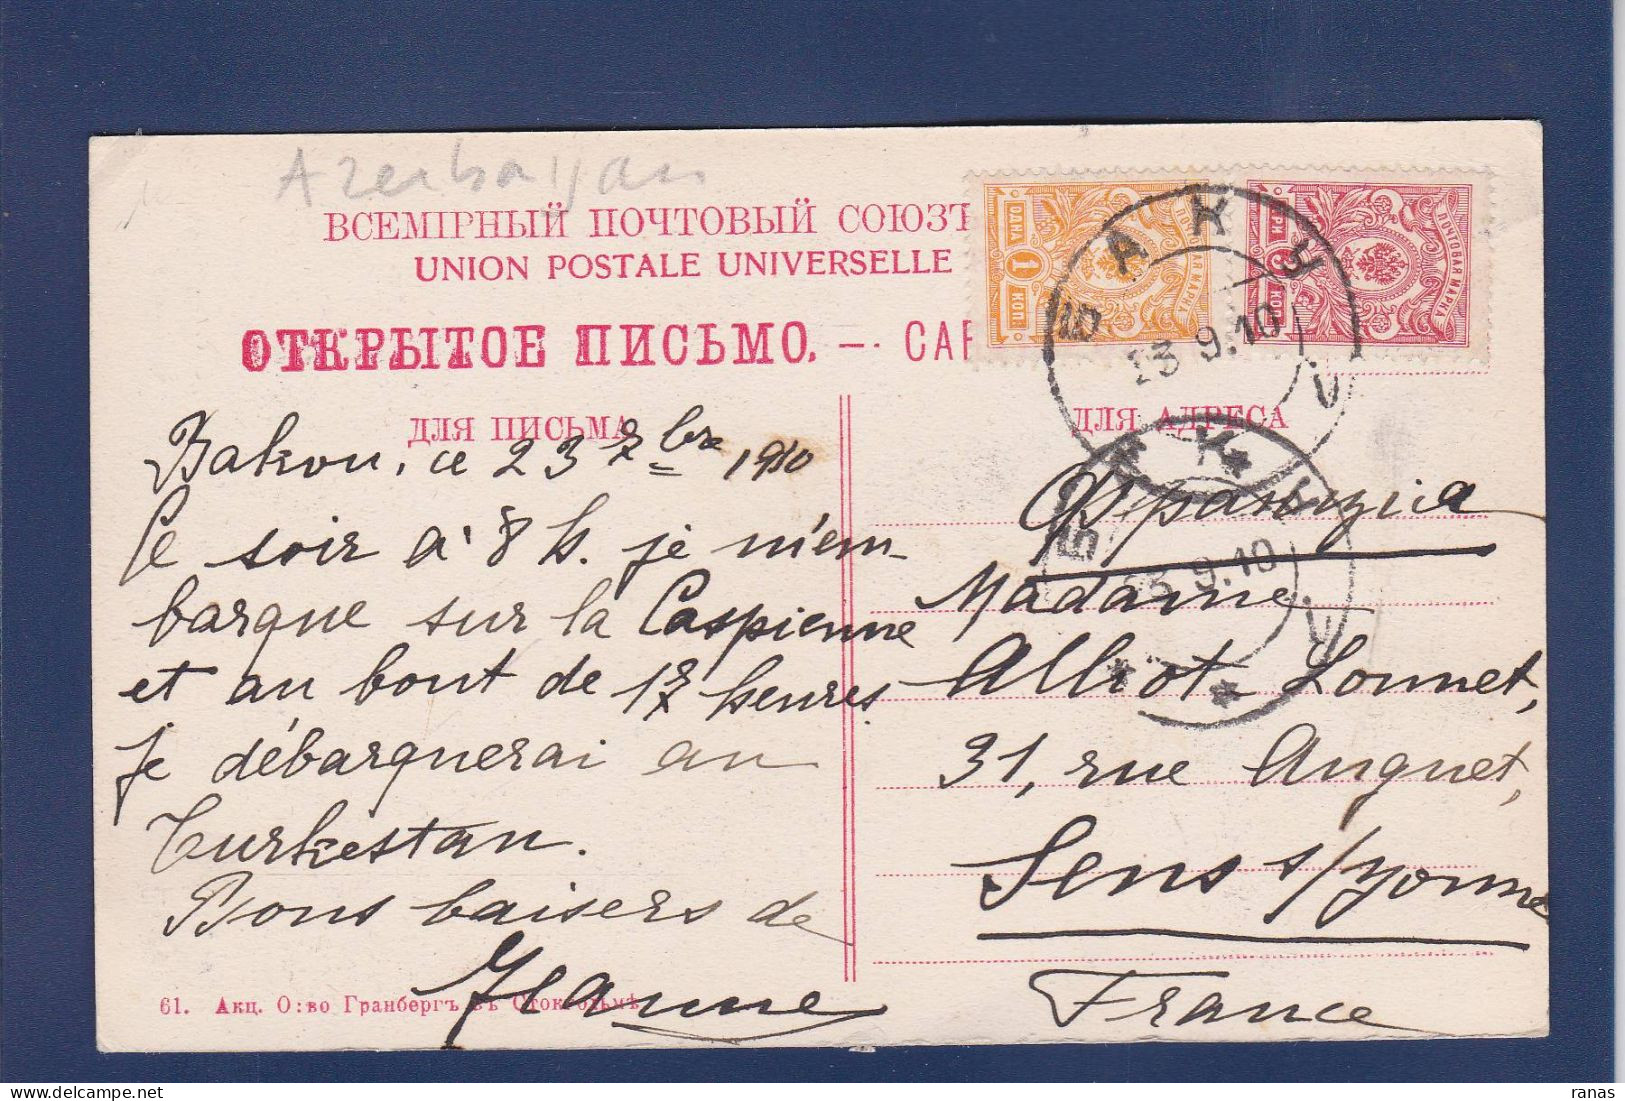 Azerbaijan
ВСЕМІРНЫЙ ПОЧТОВЫЙ СОЮЗЪ
UNION POSTALE UNIVERSELLE
ОТКРЫТОЕ ПИСЬМО. — CAR
ДЛЯ ПИСЬМА
Bakou, ce 23 7bre 1910
Ce soir à 8 h. je m'em-
barque sur la Caspienne
et au bout de 17 heures
je débarquerai au
Turkestan.
Bons baisers de
Jeanne
61. Акц. О:во Гранбергъ въ Стокгольмѣ
ОДНА
1
КОП.
ПОЧТОВАЯ МАРКА
ТРИ
3
КОП.
ПОЧТОВАЯ МАРКА
БАКУ
23.9.10
ДЛЯ АДРЕСА
БАКУ
23.9.10
Франція
Madame
Alliot-Lonnet,
31, rue Auguet,
Sens s/Yonne
France
ranas